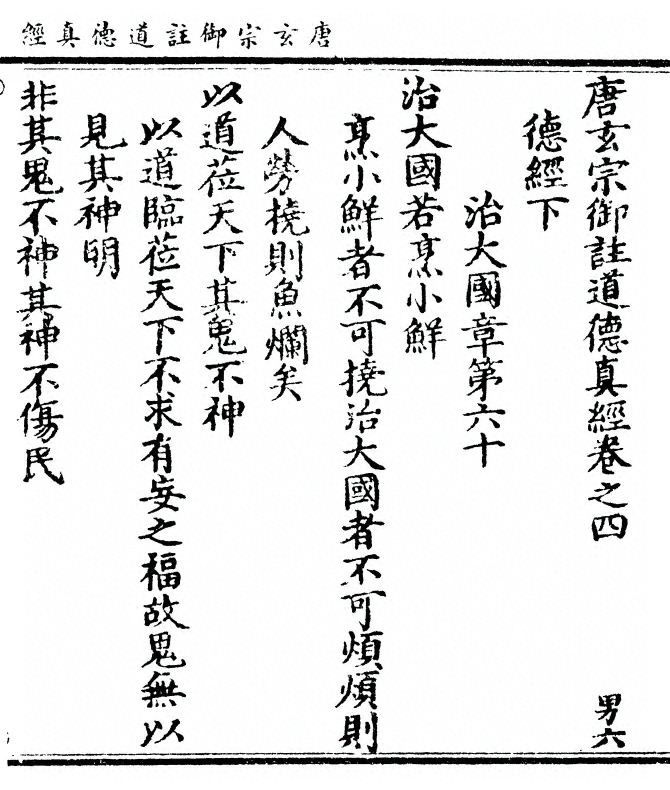 唐玄宗御註道德真經
唐玄宗御註道德真經卷之四 男六
德經下
治大國章第六十
治大國若烹小鮮
烹小鮮者不可撓治大國者不可煩煩則
人勞撓則魚爛矣
以道莅天下其鬼不神
以道臨莅天下不求有妄之福故鬼無以
見其神明
非其鬼不神其神不傷民